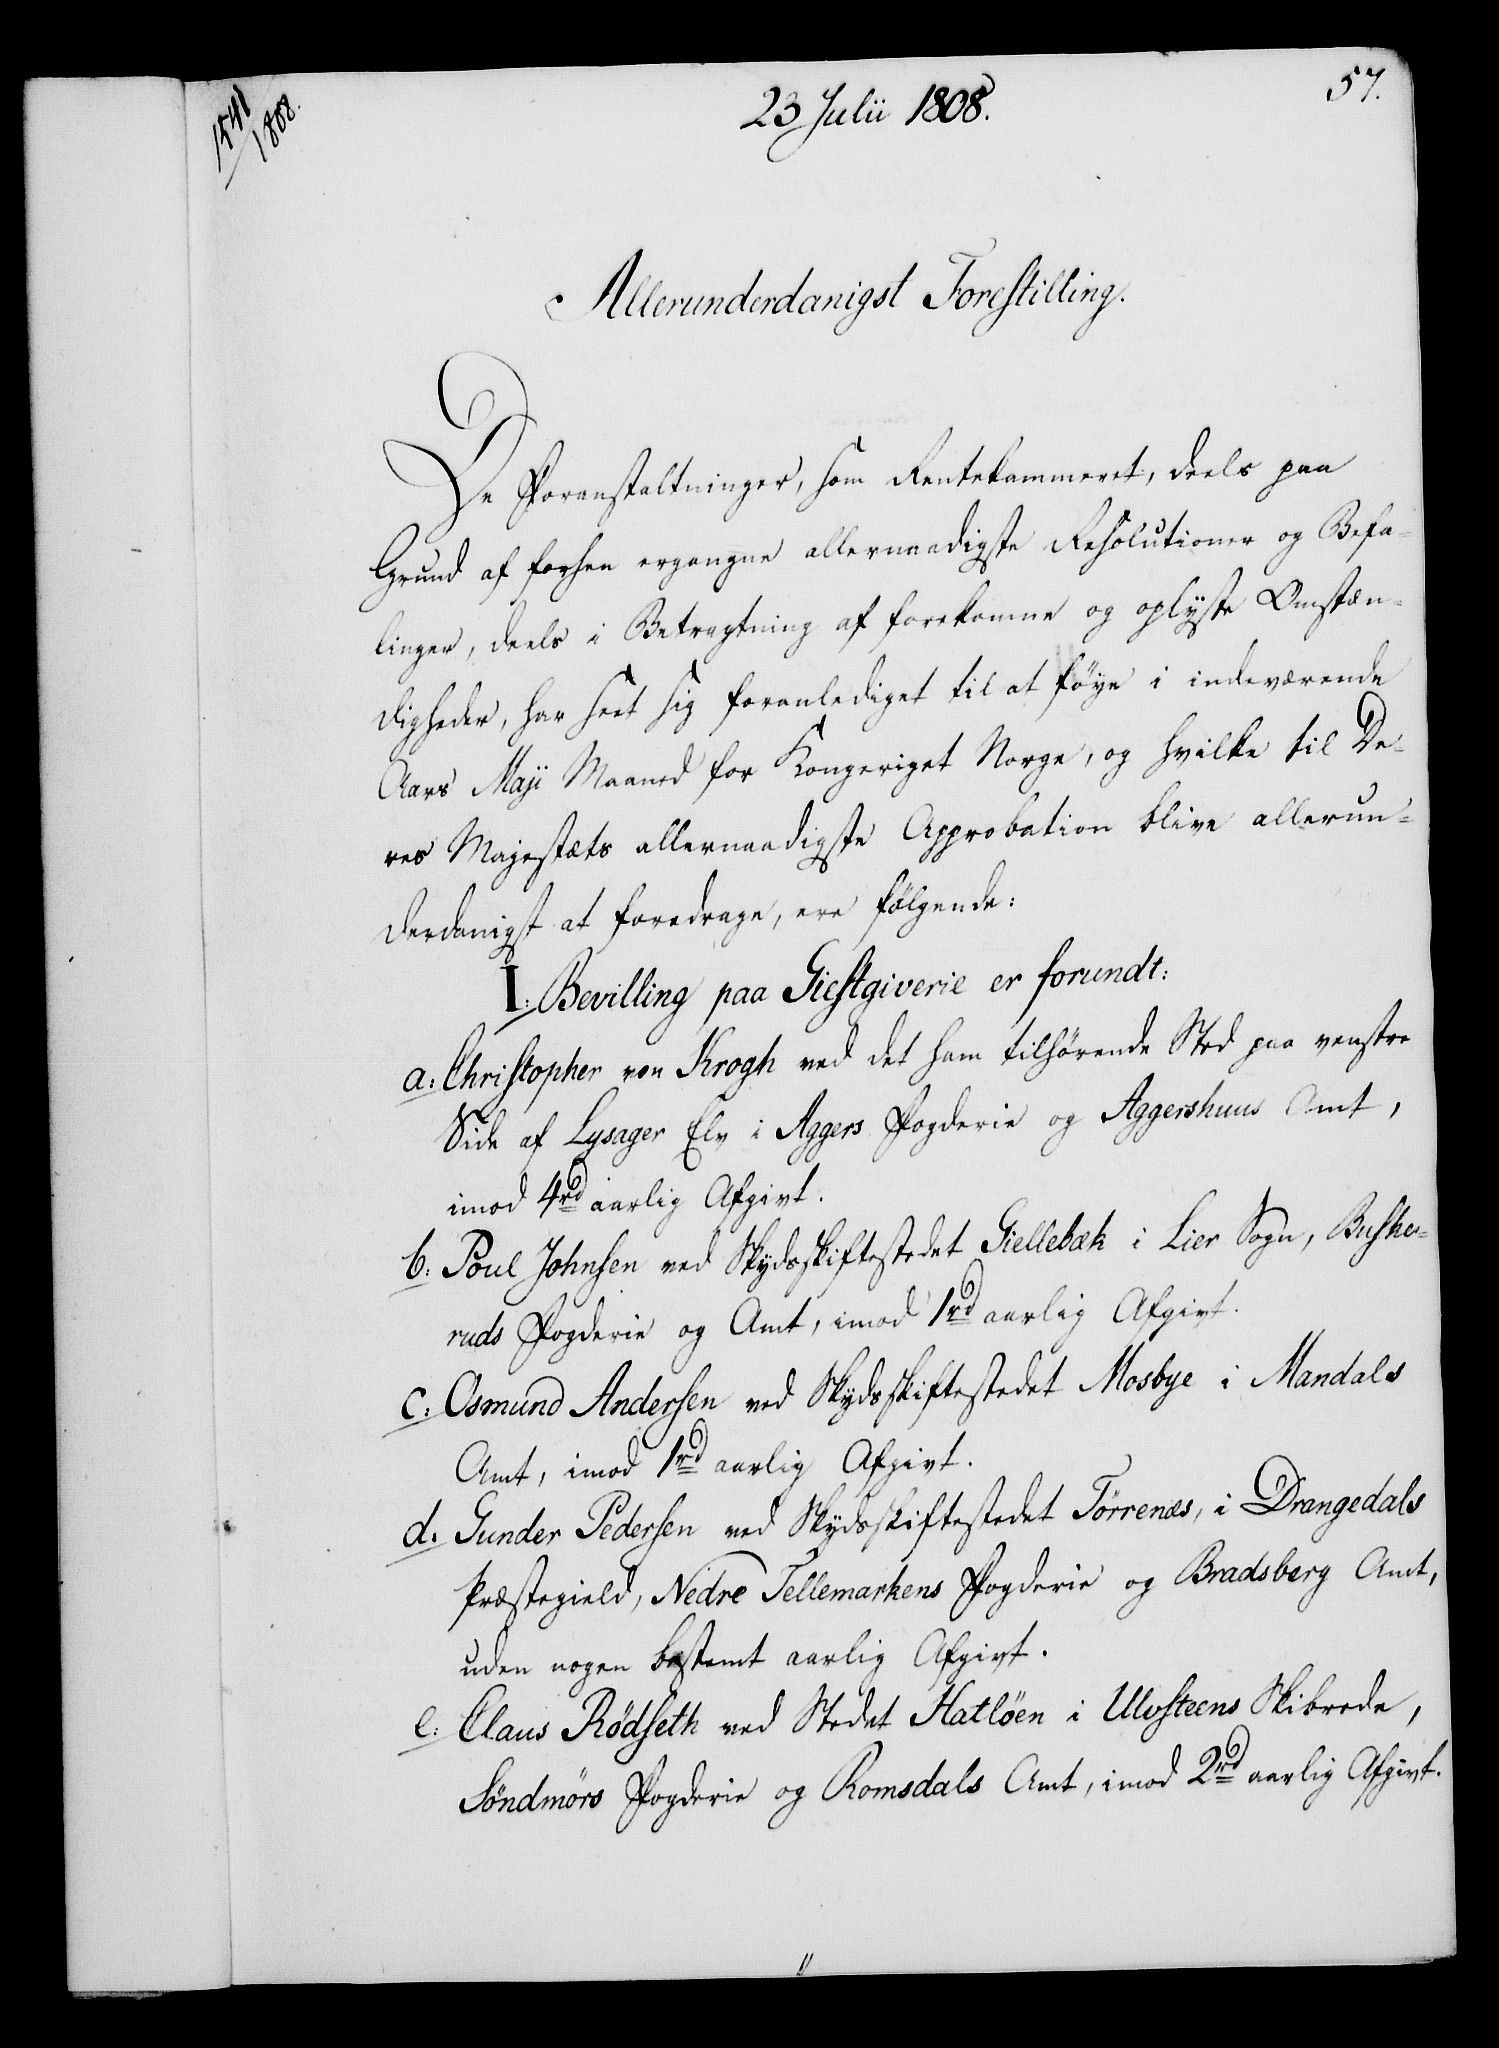 1541/1808.
23 Julii 1808.
57.
Allerunderdanigst Forestilling.
De Foranstaltninger, som Rentekammeret, deels paa
Grund af forhen ergangne allernaadigste Resolutioner og Befa-
linger, deels i Betragtning af forekomne og oplyste Omstæn-
digheder, har seet sig foranlediget til at föye i indeværende
Aars Maji Maaned for Kongeriget Norge, og hvilke til De-
res Majestæts allernaadigste Approbation blive allerun-
derdanigst at foredrage, ere følgende:
I: Bevilling paa Giestgiverie er forundt:
a: Christopher von Krogh ved det ham tilhørende Sted paa venstre
Side af Lysager Elv i Aggers Fogderie og Aggershuus Amt,
imod 4rd aarlig Afgivt.
b: Poul Johnsen ved Skydsskiftestedet Giellebæk i Lier Sogn, Buske-
ruds Fogderie og Amt, imod 1rd aarlig Afgivt.
c: Osmund Andersen ved Skydsskiftestedet Mosbye i Mandals
Amt, imod 1rd aarlig Afgivt.
d. Gunder Pedersen ved Skydsskiftestedet Törrenæs, i Drangedals
Præstegield, Nedre Tellemarkens Fogderie og Bradsberg Amt,
uden nogen bestemt aarlig Afgivt.
e: Claus Rødseth ved Stedet Hatlöen i Ulvsteens Skibrede,
Söndmörs Fogderie og Romsdals Amt, imod 2rd aarlig Afgivt.